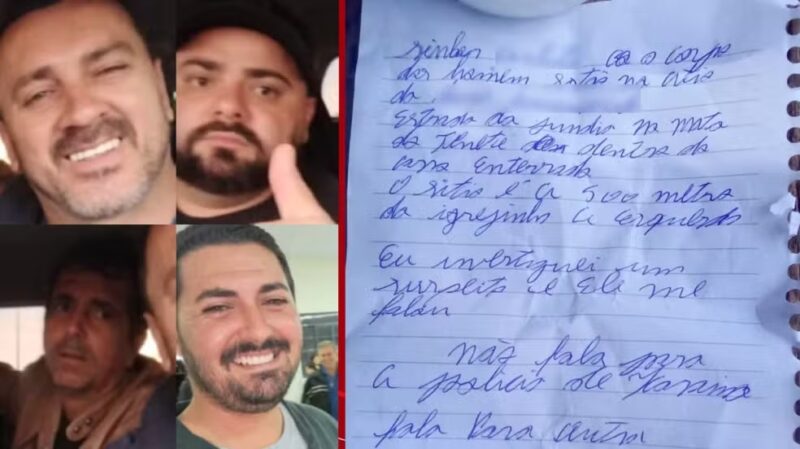 o corpo
dos homem estão na área
da
Estrada da Jundia na mata
da Tenete dentro da
casa Enterrado
O sitio é a 500 metros
da igrejinha a esquerda
Eu investiguei um
suspeito e Ele me
falou
não fala para
a policia de Icaraima
fala Para outra